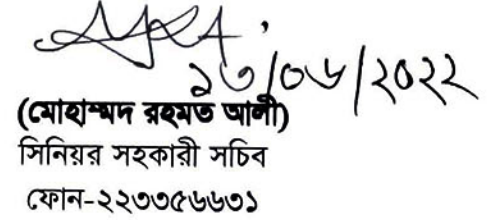 ১৩/০৬/২০২২
(মোহাম্মদ রহমত আলী)
সিনিয়র সহকারী সচিব
ফোন-২২৩৩৫৬৬৩১